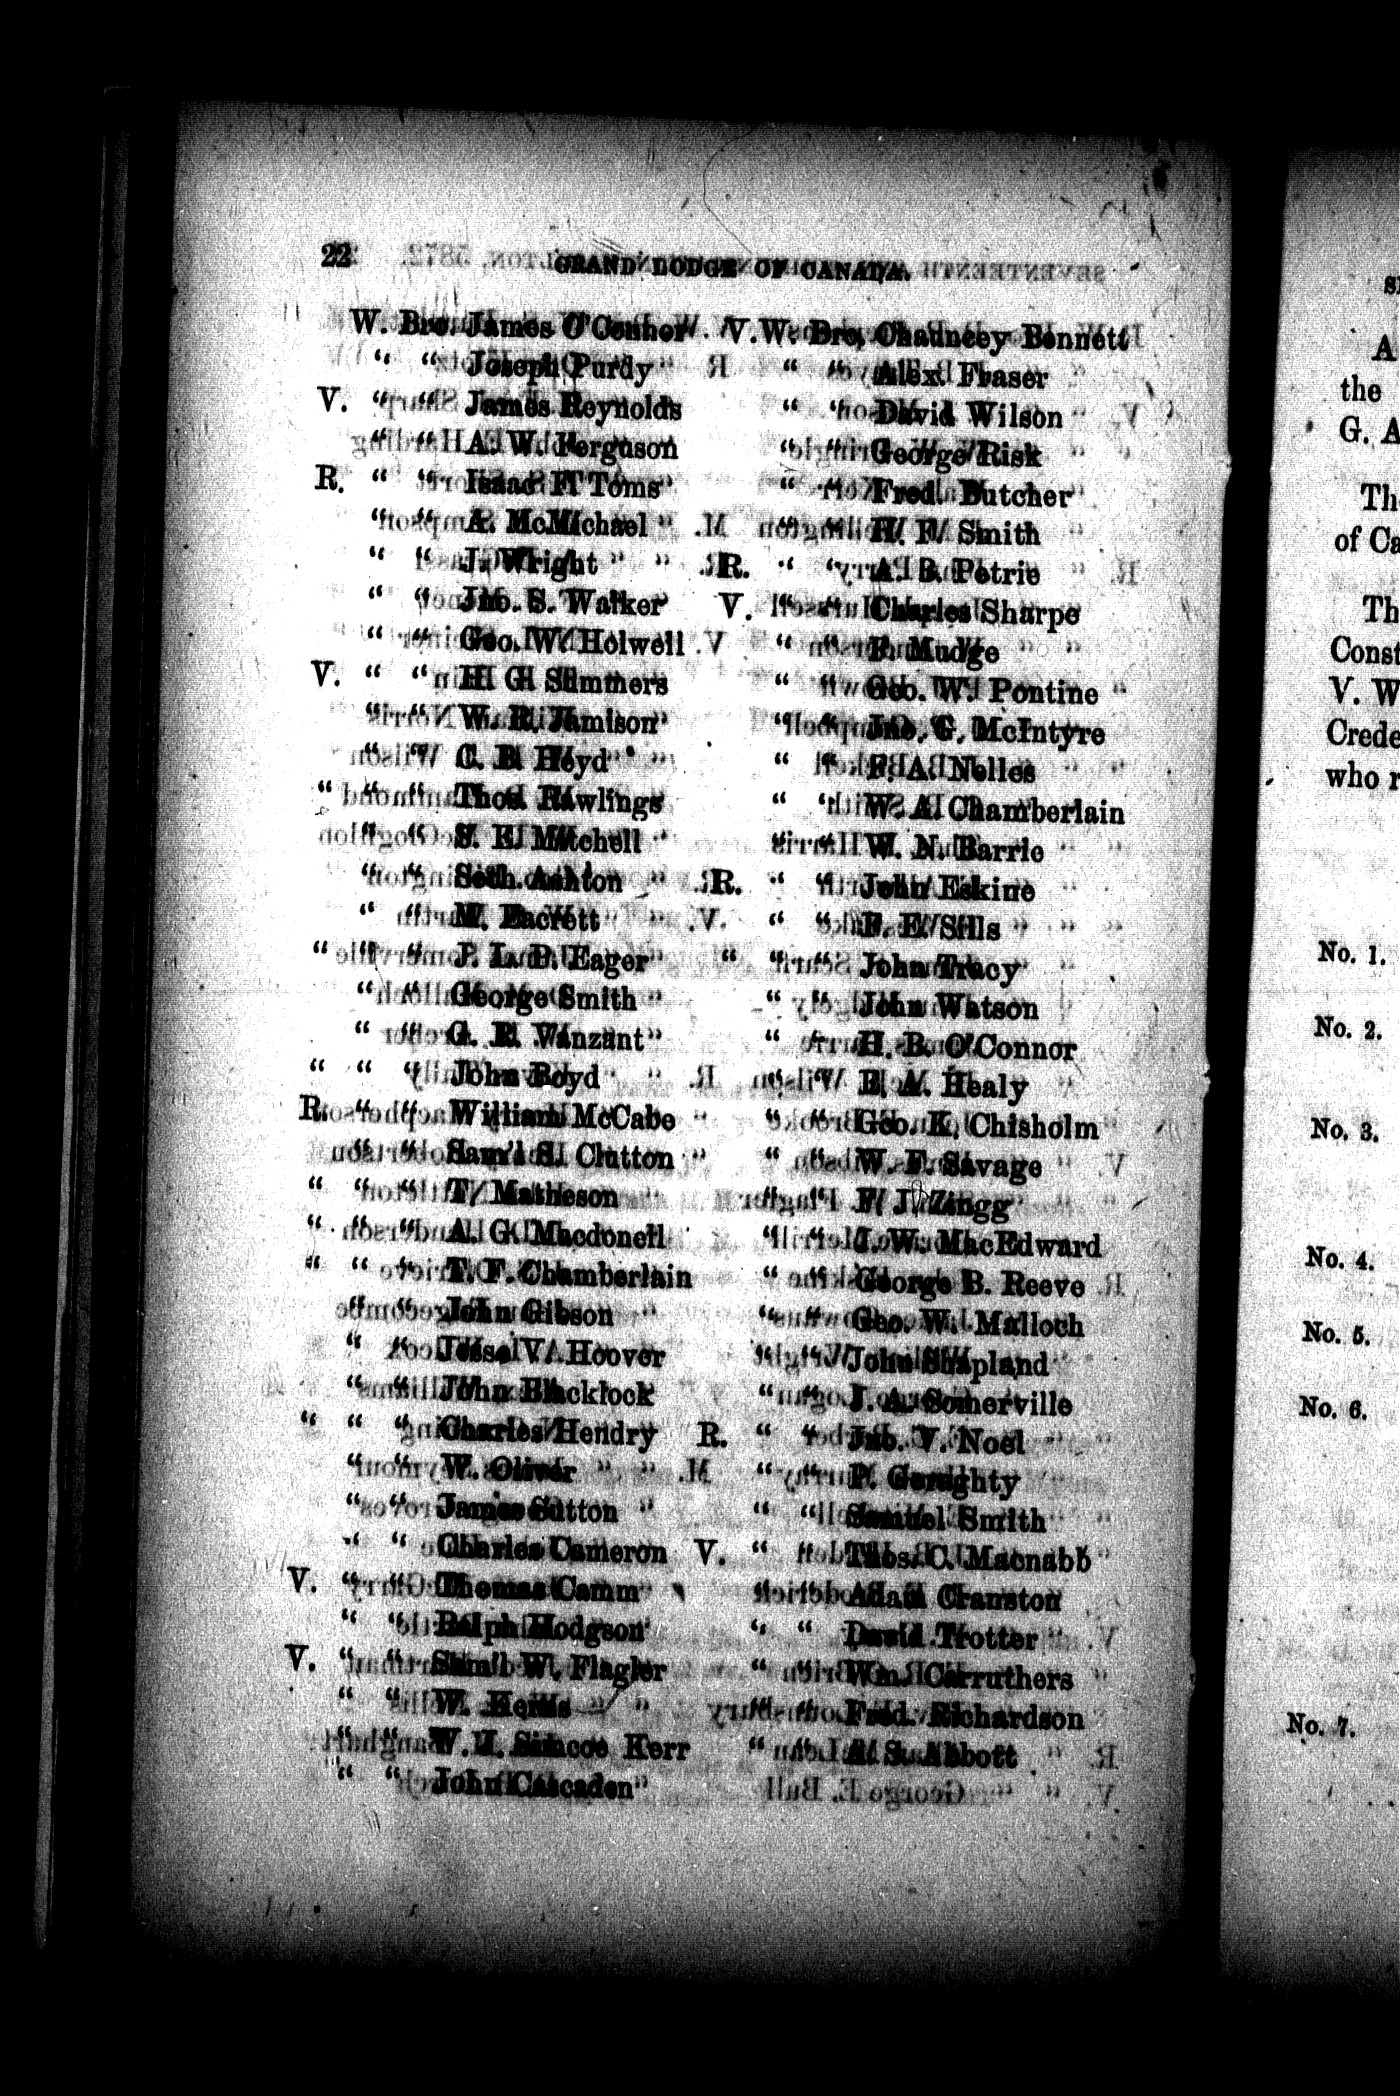 22 GRAND LODGE OF CANADA.
W. Bro. James O'Connor
" " Joseph Purdy
V. " " James Reynolds
" " A. W. Ferguson
R. " " Isaac F. Toms
" " A. McMichael
" " J. Wright
" " Jno. S. Walker
" " Geo. W. Holwell
V. " " H. G. Summers
" " W. R. Jamison
" " C. B. Heyd
" " " Thos. Rawlings
" " S. E. Mitchell
" " Seth Ashton
" " Bacrett
" " " J. L. P. Eager
" " George Smith
" " G. R. Vanzant
" " " John Boyd
R. " " William McCabe
" " Sam'l S. Clutton
" " " T. Matheson
" " " A. G. Macdonell
" " " T. F. Chamberlain
" " John Gibson
" " Jesse V. Hoover
" " John Blacklock
" " " Charles Hendry
" " W. Oliver
" " James Sutton
" " Charles Cameron
V. " " Thomas Camm
" " Ralph Hodgson
V. " " Sam'l W. Flagler
" " W. Kerns
" " W. J. Simcoe Kerr
" " John Cascaden
V. W. Bro. Chauncey Bennett
" " Alex. Fraser
" " David Wilson
" " George Risk
" " Fred. Butcher
" " H. F. Smith
R. " " A. B. Petrie
V. " " Charles Sharpe
" " Mudge
" " Geo. W. Pontine
" " Jno. G. McIntyre
" " F. A. Nelles
" " W. A. Chamberlain
" " W. N. Barrie
R. " " John Eskine
" " F. E. Sills
" " " John Tracy
" " John Watson
" " H. B. O'Connor
" " E. A. Healy
" " Geo. K. Chisholm
" " W. F. Savage
" " F. J. Zingg
" " J. W. MacEdward
" " George B. Reeve
" " Geo. W. Malloch
" " John Shapland
" " J. A. Somerville
R. " " Jno. V. Noel
" " P. Geraghty
" " Samuel Smith
V. " " Thos. C. Macnabb
" " Adam Cranston
" " David Trotter
" " Wm. Carruthers
" " Fred. Richardson
" " A. S. Abbott
A
the
G. A
The
of Ca
Th
Const
V. W
Crede
who r
No. 1.
No. 2.
No. 3.
No. 4.
No. 5.
No. 6.
No. 7.